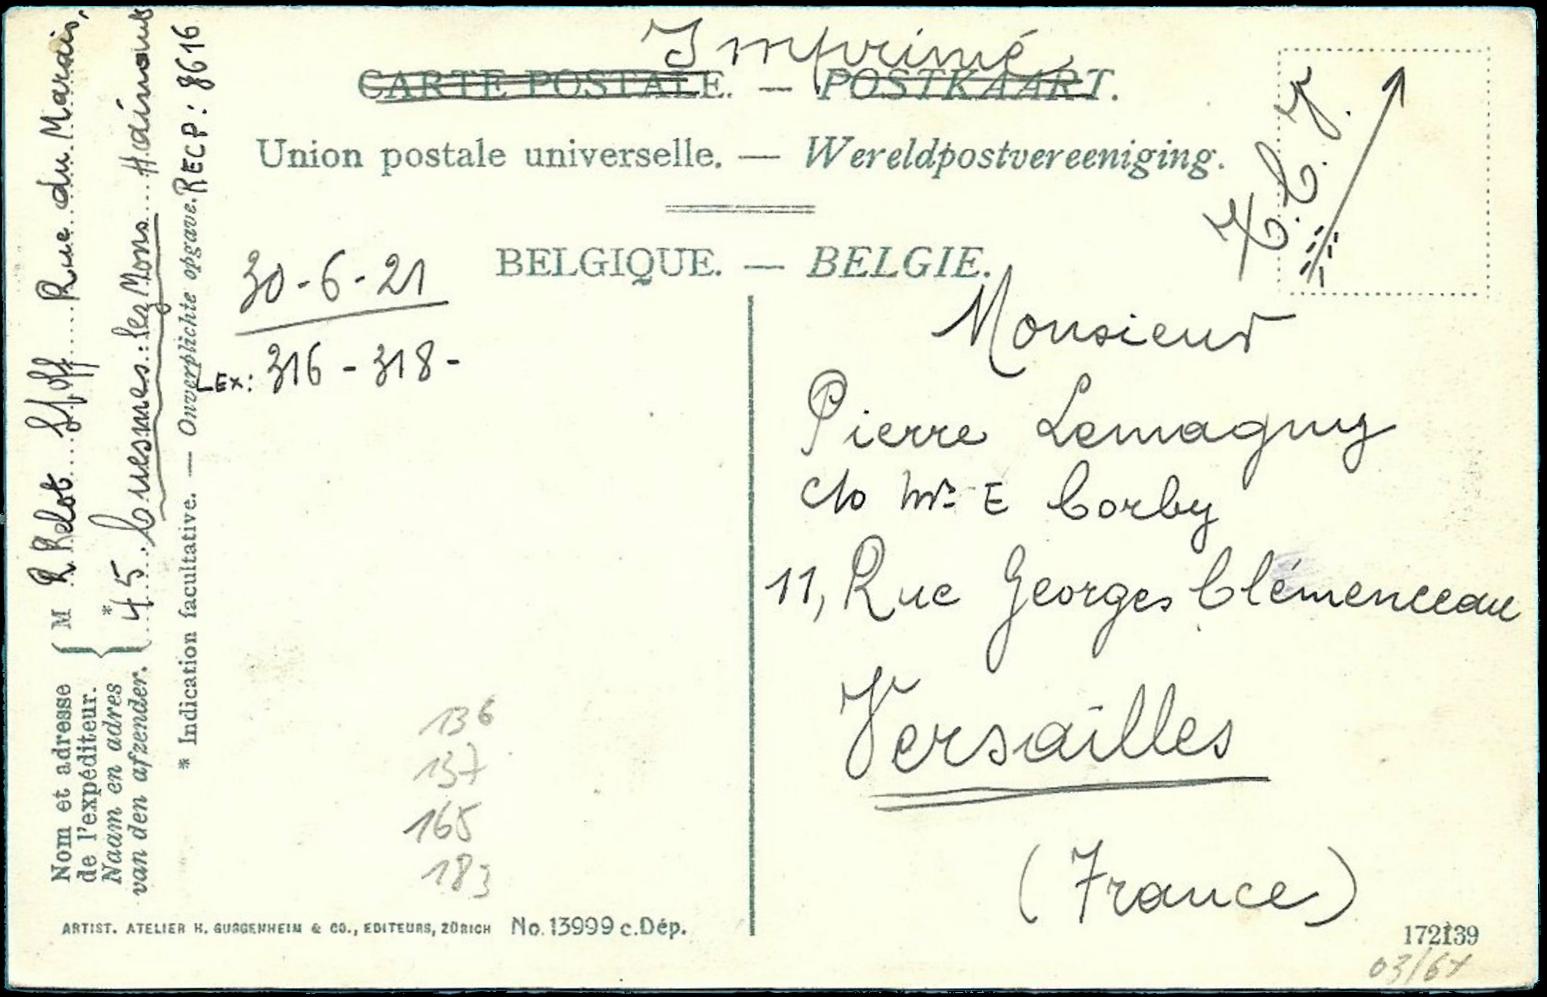 Imprimé
CARTE POSTALE. — POSTKAART.
Union postale universelle. — Wereldpostvereeniging.
BELGIQUE. — BELGIE.
30-6-21
LEX: 316 - 318 -
Monsieur
Pierre Lemagny
c/o Mr E Corby
11, Rue Georges Clémenceau
Versailles
(France)
136
137
165
183
Nom et adresse
de l'expéditeur.
Naam en adres
van den afzender.
M R Relot Rue du Marais,
* 45 Cuesmes-lez Mons Hainaut
* Indication facultative. — Onverplichte opgave.
RECP: 8616
ARTIST. ATELIER H. GUGGENHEIM & CO., EDITEURS, ZÜRICH No. 13999 c.Dép.
172139